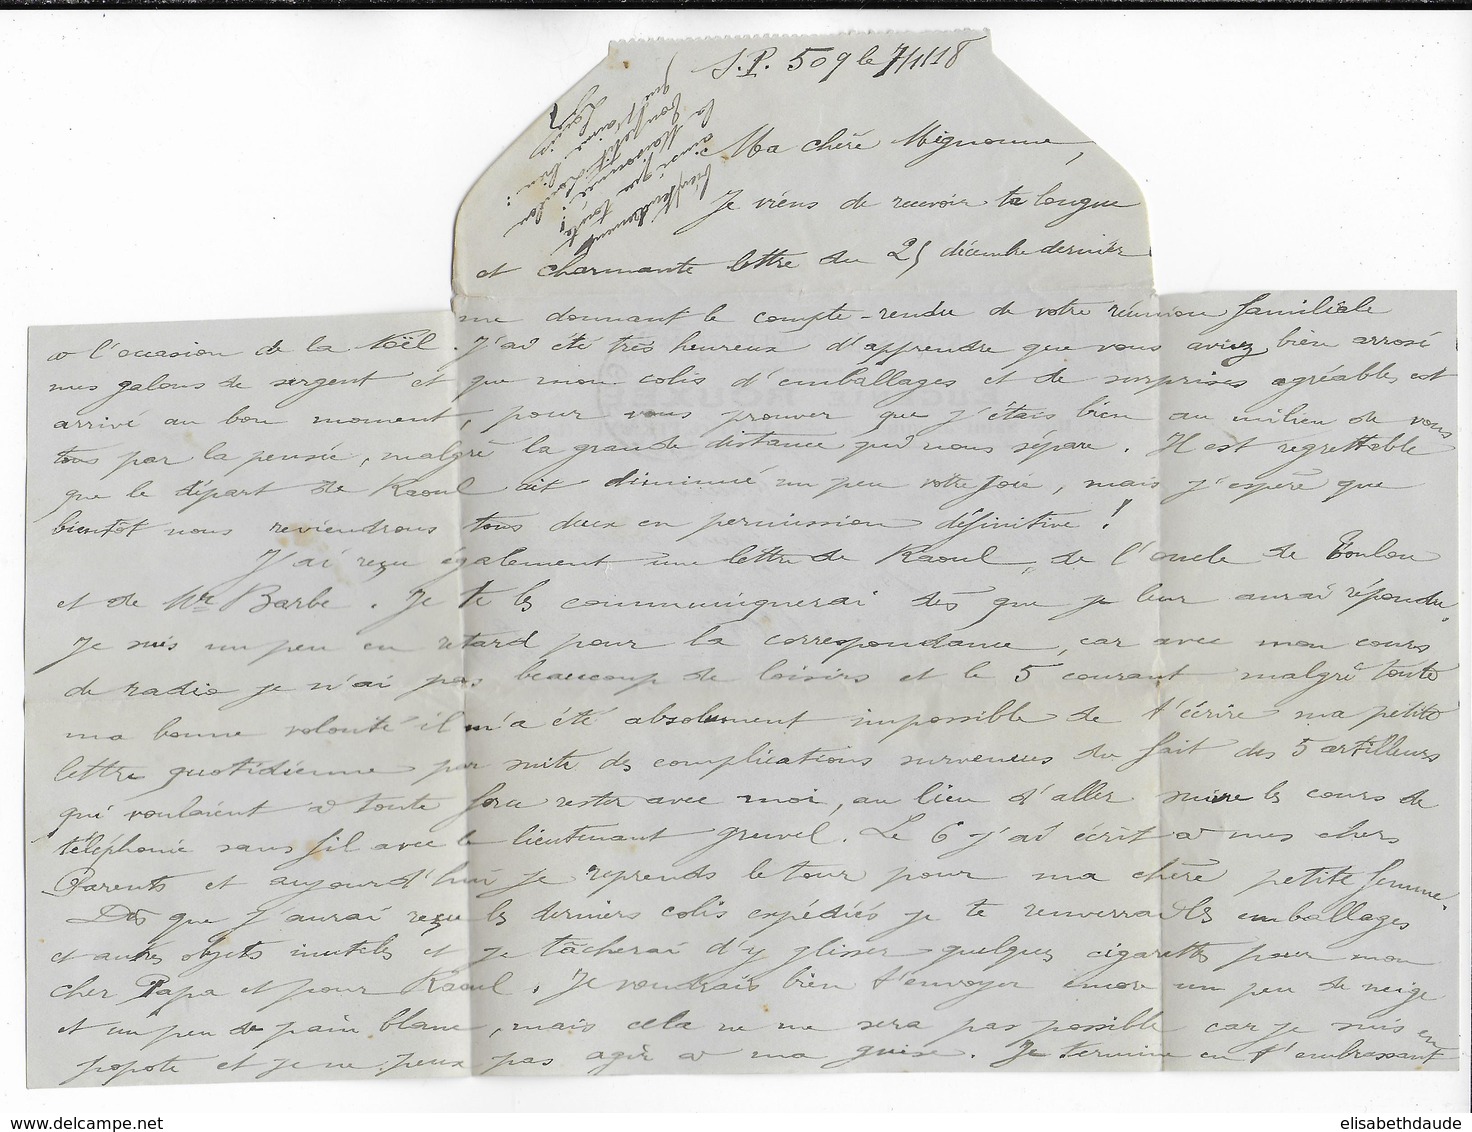 S.P. 509 le 7/1/18
Ma chère Mignonne,
Je viens de recevoir ta longue
et charmante lettre du 25 décembre dernier
me donnant le compte-rendu de votre réunion familiale
à l'occasion de la Noël. J'ai été très heureux d'apprendre que vous aviez bien arrosé
mes galons de sergent et que mon colis d'emballages et de surprises agréables est
arrivé au bon moment, pour vous prouver que j'étais bien au milieu de vous
tous par la pensée, malgré la grande distance qui nous sépare. Il est regrettable
que le départ de Raoul ait diminué un peu votre joie, mais j'espère que
bientôt nous reviendrons tous deux en permission définitive !
J'ai reçu également une lettre de Raoul, de l'oncle de Toulon
et de Mr Barbe. Je te les communiquerai dès que je leur aurai répondu.
Je suis un peu en retard pour la correspondance, car avec mon cours
de radio je n'ai pas beaucoup de loisirs et le 5 courant malgré toute
ma bonne volonté il m'a été absolument impossible de t'écrire ma petite
lettre quotidienne par suite des complications survenues du fait des 5 artilleurs
qui voulaient à toute force rester avec moi, au lieu d'aller suivre les cours de
téléphonie sans fil avec le lieutenant Gruvel. Le 6 j'ai écrit à mes chers
Parents et aujourd'hui je reprends le tour pour ma chère petite femme.
Dès que j'aurai reçu les derniers colis expédiés je te renverrai les emballages
et autres objets inutiles et je tâcherai d'y glisser quelques cigarettes pour mon
cher Papa et pour Raoul. Je voudrais bien t'envoyer encore un peu de neige
et un peu de pain blanc, mais cela ne me sera pas possible car je suis en
popote et je ne peux pas agir à ma guise. Je termine en t'embrassant
bien tendrement
ainsi que toute
la Maisonnée.
Ton petit Loulou
qui t'aime bien.
elisabethdaude